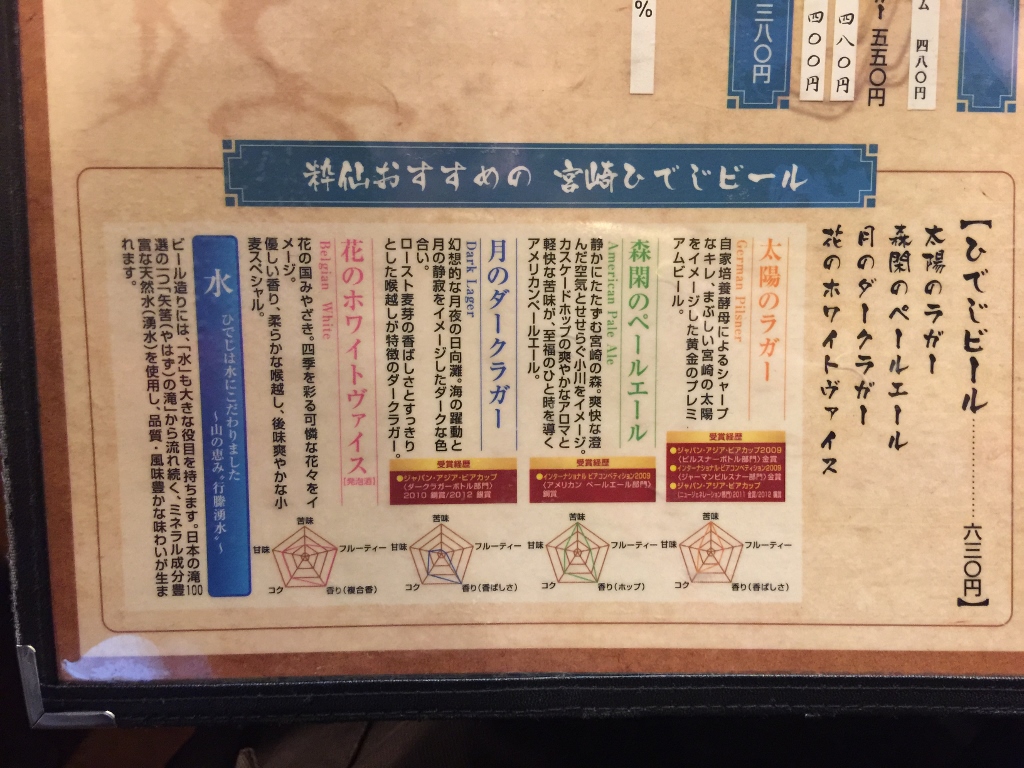 %
三八〇円
四〇〇円
四八〇円
五五〇円
ム 四八〇円
粋仙おすすめの 宮崎ひでじビール
【ひでじビール…………六三〇円】
太陽のラガー
森閑のペールエール
月のダークラガー
花のホワイトヴァイス
太陽のラガー
German Pilsner
自家培養酵母によるシャープ
なキレ、まぶしい宮崎の太陽
をイメージした黄金のプレミ
アムビール。
受賞経歴
●ジャパン・アジア・ビアカップ2009
(ピルスナーボトル部門)金賞
●インターナショナル・ビアコンペティション2009
(ジャーマンピルスナー部門)金賞
●ジャパン・アジア・ビアカップ
(ニュージェネレーション部門)2011 金賞/2012 銀賞
苦味
フルーティー
香り(香ばしさ)
コク
甘味
森閑のペールエール
American Pale Ale
静かにたたずむ宮崎の森。爽快な澄
んだ空気とせせらぐ小川をイメージ。
カスケードホップの爽やかなアロマと
軽快な苦味が、至福のひと時を導く
アメリカンペールエール。
受賞経歴
●インターナショナル ビアコンペティション2009
(アメリカン ペールエール部門)
銅賞
苦味
フルーティー
香り(ホップ)
コク
甘味
月のダークラガー
Dark Lager
幻想的な月夜の日向灘。海の躍動と
月の静寂をイメージしたダークな色
合い。
ロースト麦芽の香ばしさとすっきり
とした喉越しが特徴のダークラガー。
受賞経歴
●ジャパン・アジア・ビアカップ
(ダークラガーボトル部門)
2010 銅賞/2012 銀賞
苦味
フルーティー
香り(香ばしさ)
コク
甘味
花のホワイトヴァイス [発泡酒]
Belgian White
花の国みやざき。四季を彩る可憐な花々をイ
メージ。
優しい香り、柔らかな喉越し、後味爽やかな小
麦スペシャル。
苦味
フルーティー
香り(複合香)
コク
甘味
水 ひでじは水にこだわりました
～山の恵み。行縢湧水。～
ビール造りには、「水」も大きな役目を持ちます。日本の滝100
選の一つ「矢筈(やはず)の滝」から流れ続く、ミネラル成分豊
富な天然水(湧水)を使用し、品質・風味豊かな味わいが生ま
れます。